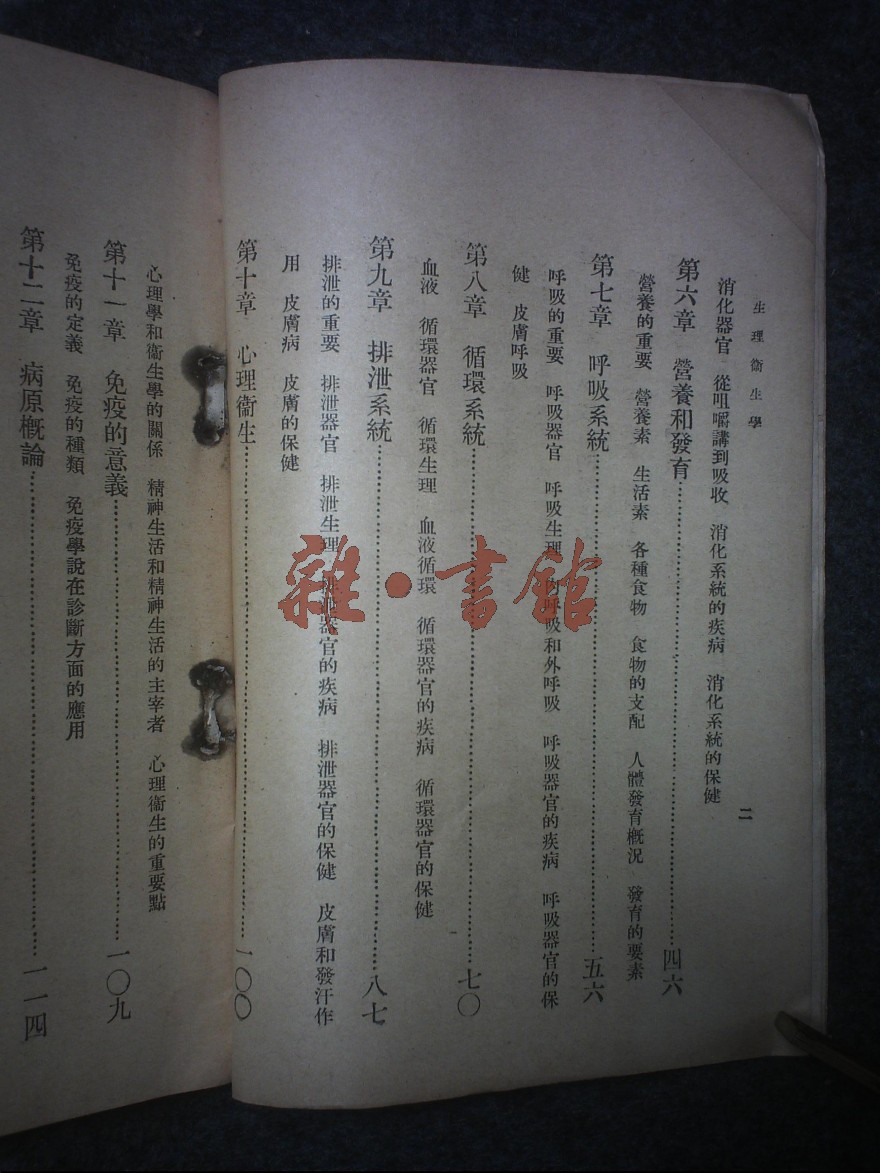 生理衞生學
二
消化器官 從咀嚼講到吸收 消化系統的疾病 消化系統的保健
第六章 營養和發育……四六
營養的重要 營養素 生活素 各種食物 食物的支配 人體發育概況 發育的要素
第七章 呼吸系統……五六
呼吸的重要 呼吸器官 呼吸生理 內呼吸和外呼吸 呼吸器官的疾病 呼吸器官的保
健 皮膚呼吸
第八章 循環系統……七〇
血液 循環器官 循環生理 血液循環 循環器官的疾病 循環器官的保健
第九章 排泄系統……八七
排泄的重要 排泄器官 排泄生理 排泄器官的疾病 排泄器官的保健 皮膚和發汗作
用 皮膚病 皮膚的保健
第十章 心理衞生……一〇〇
心理學和衞生學的關係 精神生活和精神生活的主宰者 心理衞生的重要點
第十一章 免疫的意義……一〇九
免疫的定義 免疫的種類 免疫學說在診斷方面的應用
第十二章 病原概論……一一四
雜·書館